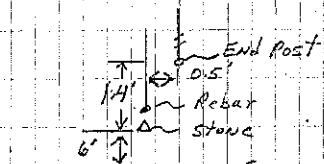 End Post
0.5'
1.4'
Rebar
Stone
6'